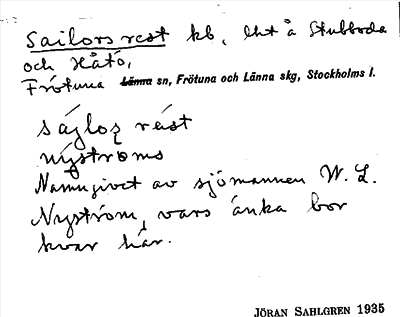 Sailors rest kb, lht å Stubboda
och Håtö,
Frötuna Länna sn, Frötuna och Länna skg, Stockholms l.
sájloʐ rést
nýströms
Namngivet av sjömannen W. L.
Nyström, vars änka bor
kvar här.
JÖRAN SAHLGREN 1935